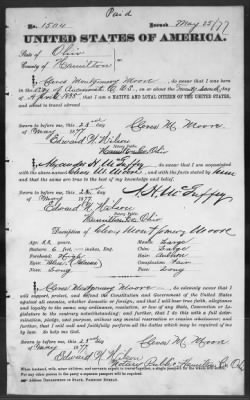 Paid
No. 1504 Issued May 25/77
UNITED STATES OF AMERICA.
State of Ohio
County of Hamilton
I, Clens Montgomery Moore, do swear that I was born
in the City of Cincinnati O. USA, on or about the Twenty Second day
of April 1855; that I am a NATIVE AND LOYAL CITIZEN OF THE UNITED STATES,
and about to travel abroad.
Sworn to before me, this 23d day
of May 1877
Edward W. Wilson
Notary Public
Hamilton Co Ohio
M. Moore
I, Alexander H. McGuffey, do swear that I am acquainted
with the above-named M. Moore, and with the facts
and that the same are true to the best of my knowledge and belief.
Sworn to before me, this 23d day
of May 1877
Edward W. Wilson
Notary Public
Hamilton Co. Ohio
A. H. McGuffey
Description of Montgomery Moore
Age: 22 years. Mouth: Large
Stature: 6 feet, inches, Eng. Chin: Large
Forehead: High Hair: Auburn
Eyes: Blue Complexion: Fair
Nose: Long Face: Long
I, Montgomery Moore, do solemnly swear that I will
support, protect, and defend the Constitution and Government of the United States
against all enemies, whether domestic or foreign; and that I will bear true faith, allegiance
and loyalty to the same, any ordinance, resolution, or law of any State, Convention or Legislature
to the contrary notwithstanding; and further, that I do this with a full determination,
pledge, and purpose, without any mental reservation or evasion whatsoever;
and further, that I will well and faithfully perform all the duties which may be required of me
by law. So help me God.
Sworn to before me, this 23d day
of May 1877
M. Moore
Edward W. Wilson
Notary Public Hamilton Co. O.